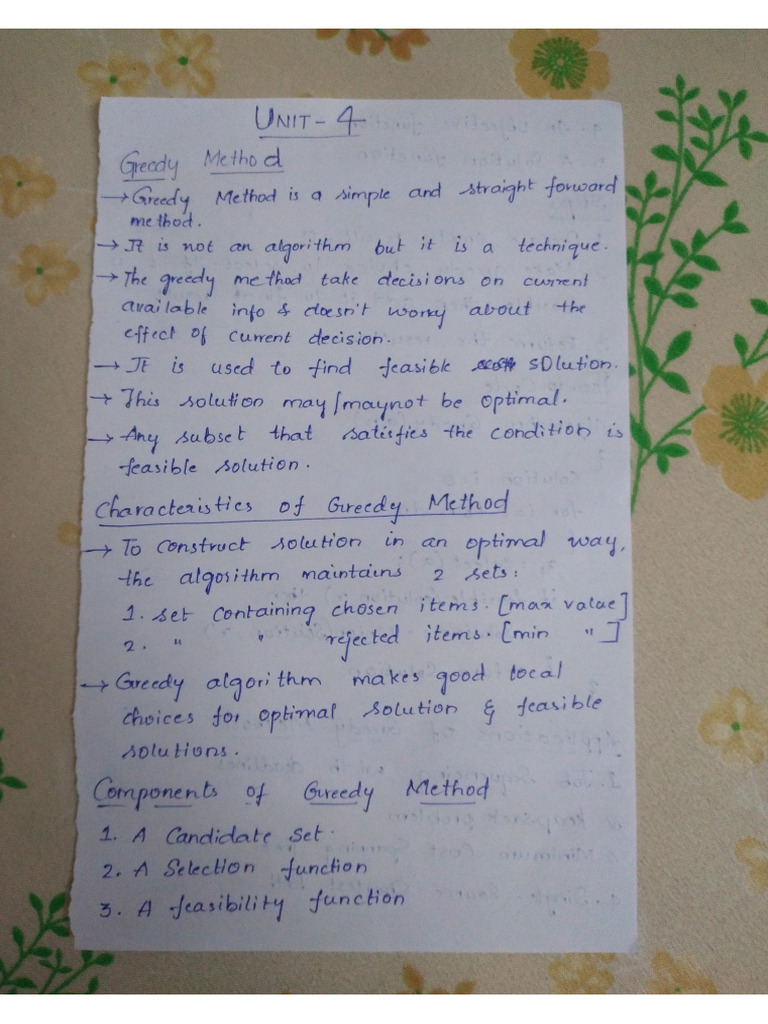 UNIT - 4
Greedy Method
→ Greedy Method is a simple and straight forward
method.
→ It is not an algorithm but it is a technique.
→ The greedy method take decisions on current
available info & doesn't worry about the
effect of current decision.
→ It is used to find feasible solution.
→ This solution may/maynot be optimal.
→ Any subset that satisfies the condition is
feasible solution.
Characteristics of Greedy Method
→ To construct solution in an optimal way,
the algorithm maintains 2 sets:
1. set containing chosen items. [max value]
2. " " rejected items. [min "]
→ Greedy algorithm makes good local
choices for optimal solution & feasible
solutions.
Components of Greedy Method
1. A Candidate set.
2. A Selection function
3. A feasibility function